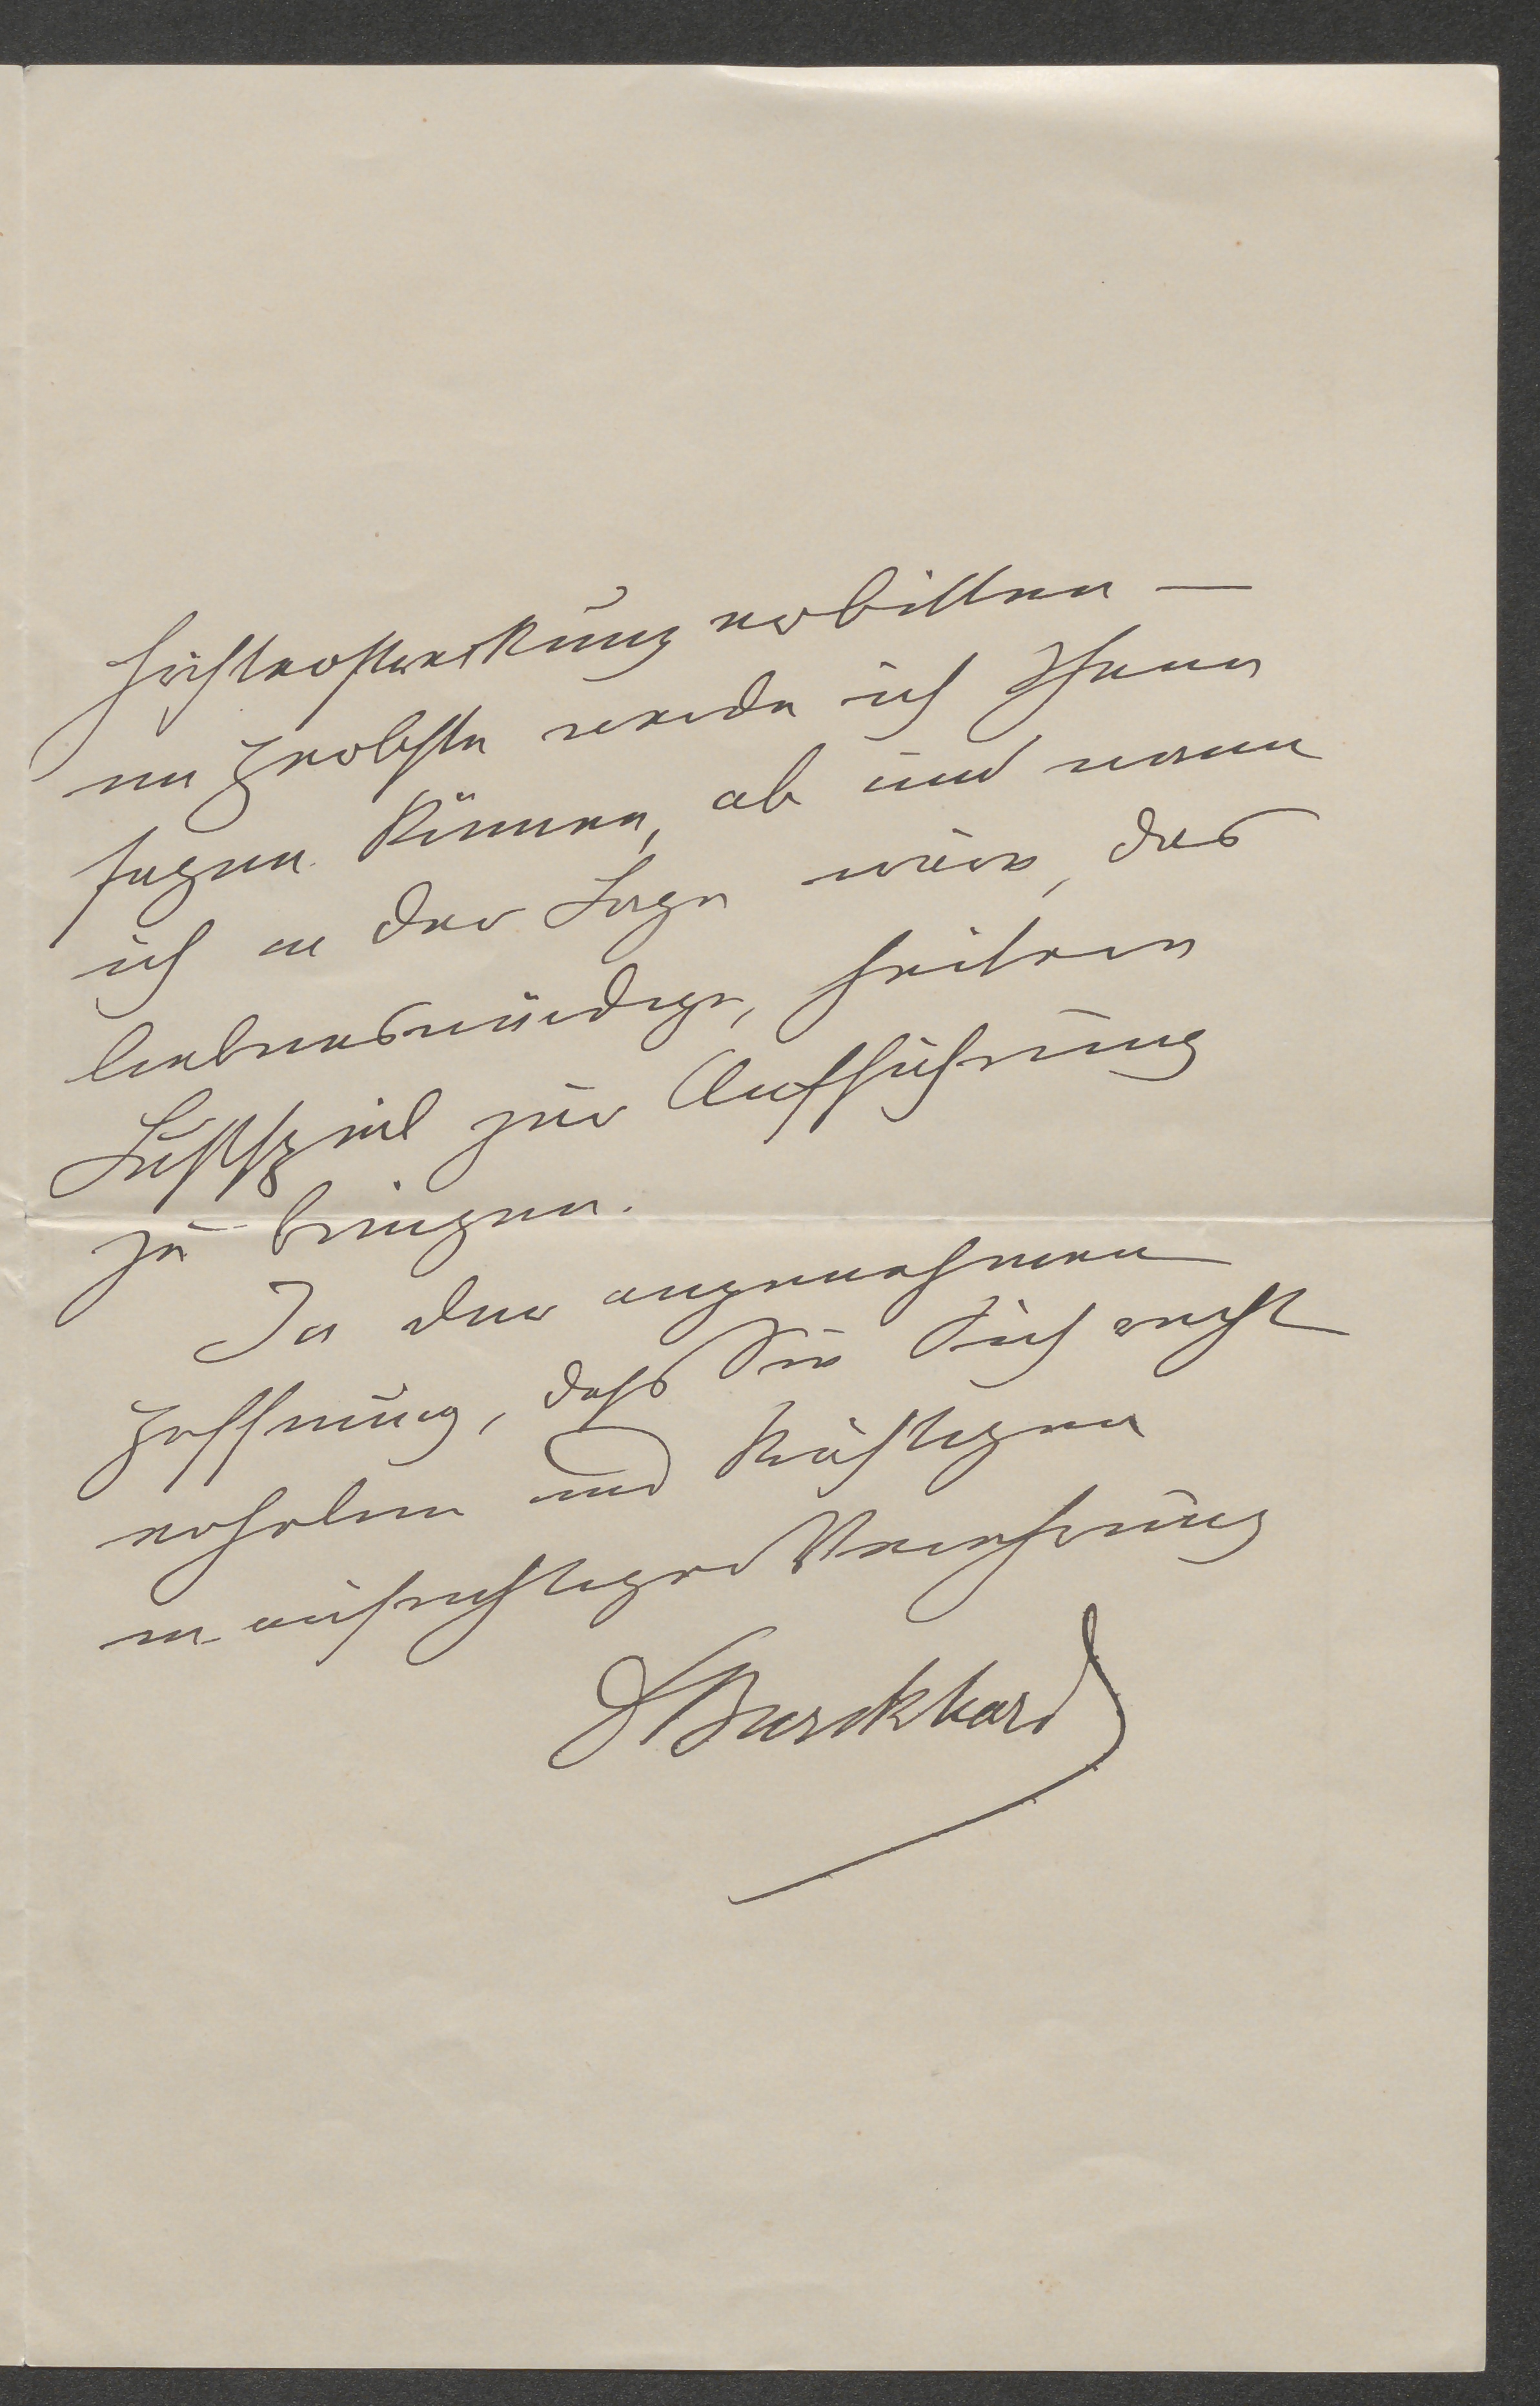 Fristerstreckung erbitten —
im Herbste werde ich Ihnen
sagen können, ob und wann
ich in der Lage wäre, das
liebenswürdige, heitere
Lustspiel zur Aufführung
zu bringen.
In der angenehmen
Hoffnung, daß Sie Sich recht
erholen und kräftigen
in aufrichtiger Verehrung
DBurckhard